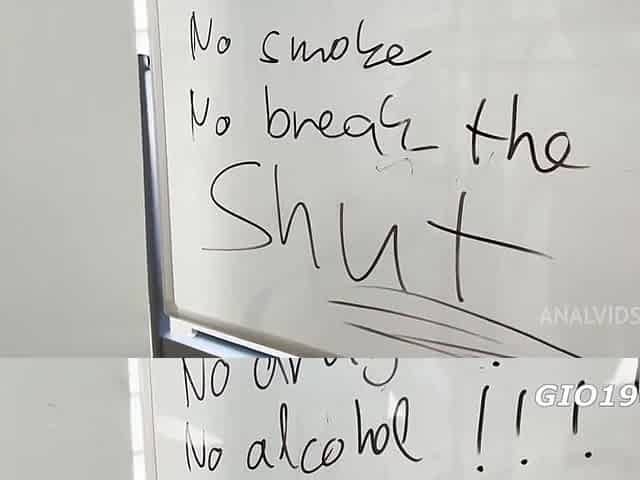 No smoke
No break the
Shut
ANALVIDS
No drug
GIO19
No alcohol !!!